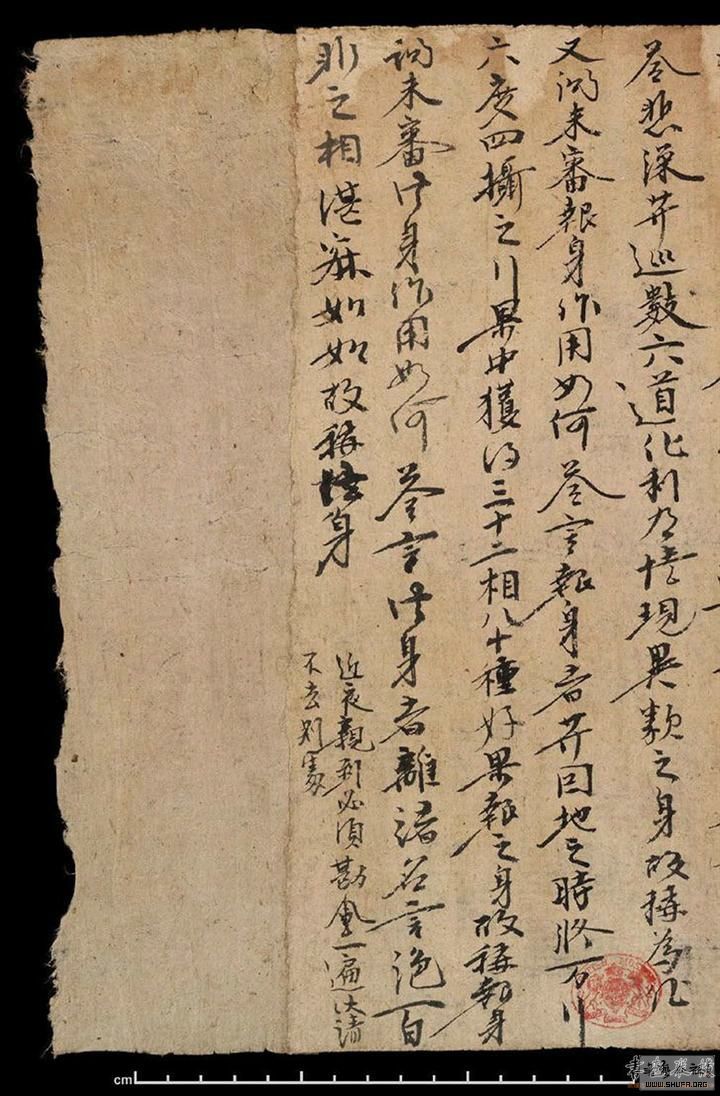 答悲深菩巡數六道化利有情現異類之身故稱為化
又問未審報身作用如何答言報身者菩因地之時將万行
六度四攝之行果中獲得三十二相八十種好果報之身故稱報身
問未審法身作用如何答言法身者離諸名言絕百
非之相湛寂如如故稱法身
近夜親到必須勘一遍決請
不去別處
cm
WWW.SHUFA.ORG